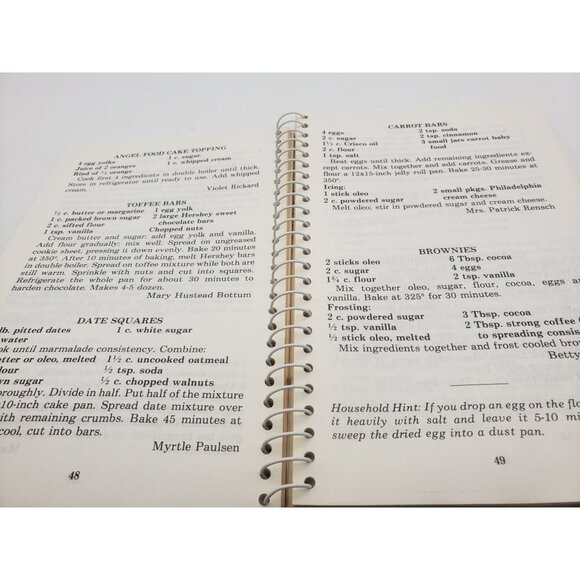 ANGEL FOOD CAKE TOPPING
4 egg yolks 1 c. sugar
Juice of 2 oranges 1 c. whipped cream
Rind of ½ orange
Cook first 4 ingredients in double boiler until thick.
Store in refrigerator until ready to use. Add whipped
cream.
Violet Rickard
TOFFEE BARS
½ c. butter or margarine 1 egg yolk
1 c. packed brown sugar 2 large Hershey sweet
2 c. sifted flour chocolate bars
1 tsp. vanilla Chopped nuts
Cream butter and sugar; add egg yolk and vanilla.
Add flour gradually; mix well. Spread on ungreased
cookie sheet, pressing it down evenly. Bake 20 minutes
at 350°. After 10 minutes of baking, melt Hershey bars
in double boiler. Spread on toffee mixture while both are
still warm. Sprinkle with nuts and cut into squares.
Refrigerate the whole pan for about 30 minutes to
harden chocolate. Makes 4-5 dozen.
Mary Hustead Bottum
DATE SQUARES
lb. pitted dates 1 c. white sugar
water
ook until marmalade consistency. Combine:
utter or oleo, melted 1½ c. uncooked oatmeal
lour ½ tsp. soda
wn sugar ½ c. chopped walnuts
oroughly. Divide in half. Put half of the mixture
10-inch cake pan. Spread date mixture over
with remaining crumbs. Bake 45 minutes at
cool, cut into bars.
Myrtle Paulsen
48
CARROT BARS
4 eggs 2 tsp. soda
2 c. sugar 2 tsp. cinnamon
1½ c. Crisco oil 3 small jars carrot baby
2 c. flour food
1 tsp. salt
Beat eggs until thick. Add remaining ingredients ex-
cept carrots. Mix together and add carrots. Grease and
flour a 12x15-inch jelly roll pan. Bake 25-30 minutes at
350°.
Icing:
1 stick oleo 2 small pkgs. Philadelphia
2 c. powdered sugar cream cheese
Melt oleo; stir in powdered sugar and cream cheese.
Mrs. Patrick Rensch
BROWNIES
2 sticks oleo 6 Tbsp. cocoa
2 c. sugar 4 eggs
1¾ c. flour 2 tsp. vanilla
Mix together oleo, sugar, flour, cocoa, eggs an
vanilla. Bake at 325° for 30 minutes.
Frosting:
2 c. powdered sugar 3 Tbsp. cocoa
½ tsp. vanilla 2 Tbsp. strong coffee
½ stick oleo, melted to spreading consis
Mix ingredients together and frost cooled brow
Betty
Household Hint: If you drop an egg on the flo
it heavily with salt and leave it 5-10 mi
sweep the dried egg into a dust pan.
49